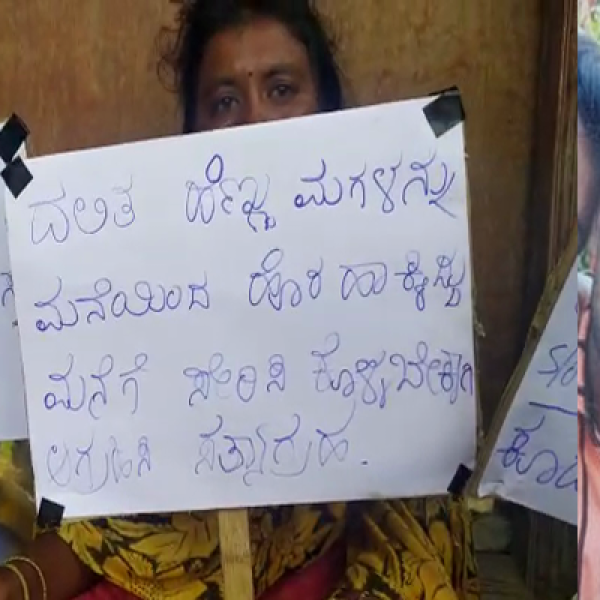 ದಲಿತ ಹೆಣ್ಣು ಮಗಳನ್ನು
ಮನೆಯಿಂದ ಹೊರ ಹಾಕಿದ್ದು
ಮನೆಗೆ ಸೇರಿಸಿ ಕೊಳ್ಳಬೇಕಾಗಿ
ಆಗ್ರಹಿಸಿ ಸತ್ಯಾಗ್ರಹ.